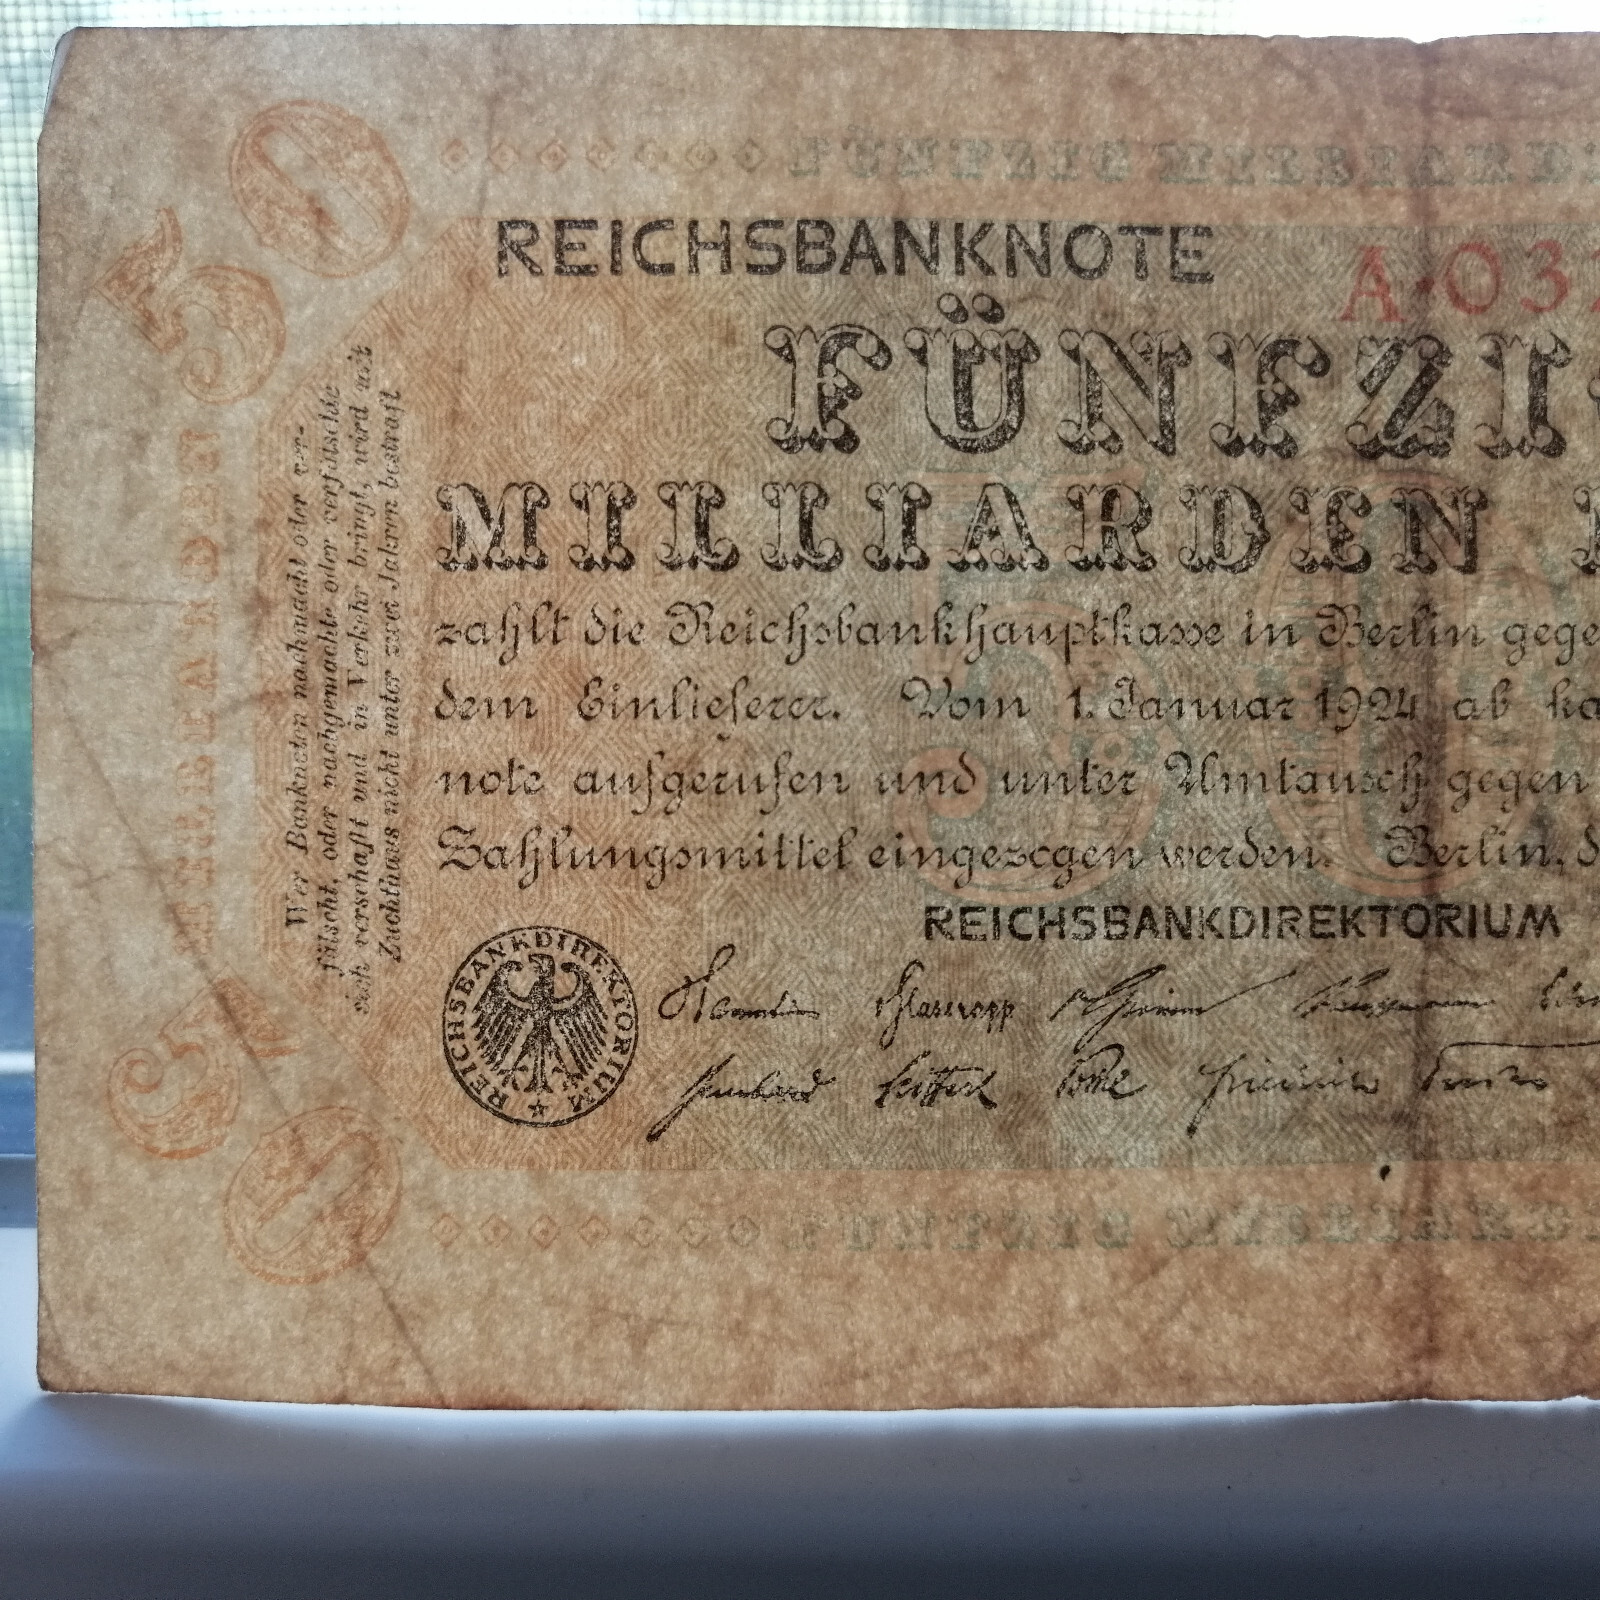 50
FÜNFZIG MILLIARDE
REICHSBANKNOTE
A·03
FÜNFZI
MILLIARDEN
zahlt die Reichsbankhauptkasse in Berlin gege
dem Einlieferer. Vom 1. Januar 1924 ab ka
note aufgerufen und unter Umtausch gegen
Zahlungsmittel eingezogen werden. Berlin, d
REICHSBANKDIREKTORIUM
REICHSBANKDIREKTORIUM
Wer Banknoten nachmacht oder ver-
fälscht, oder nachgemachte oder verfälschte
sich verschafft und in Verkehr bringt, wird mit
Zuchthaus nicht unter zwei Jahren bestraft
MILLIARDEN
50
50
FÜNFZIG MILLIARD